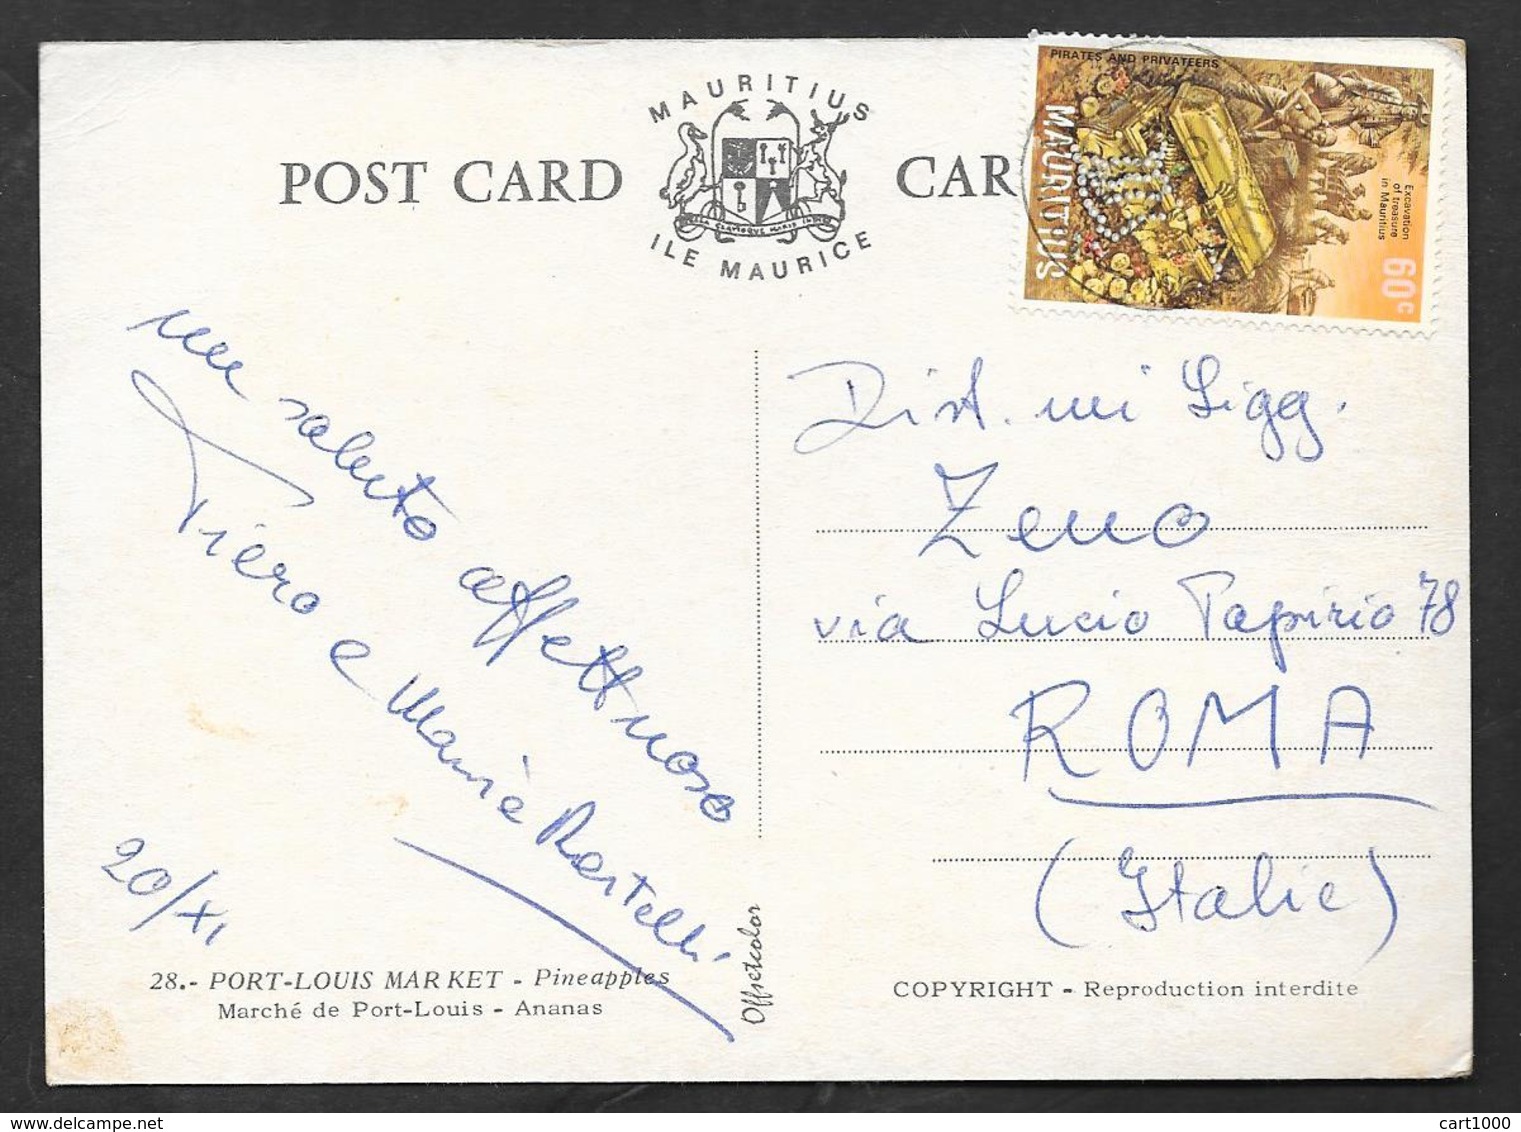 MAURITIUS
POST CARD
CAR
ILE MAURICE
PIRATES AND PRIVATEERS
MAURITIUS
Excavation
of treasure
in Mauritius
60c
un saluto affettuoso
Piero e Maria Rastelli
20/XI
Dist. mi Sigg.
Zeno
via Lucio Papirio 78
ROMA
(Italie)
28.- PORT-LOUIS MARKET - Pineapples
Marché de Port-Louis - Ananas
Offsetcolor
COPYRIGHT - Reproduction interdite
cart1000